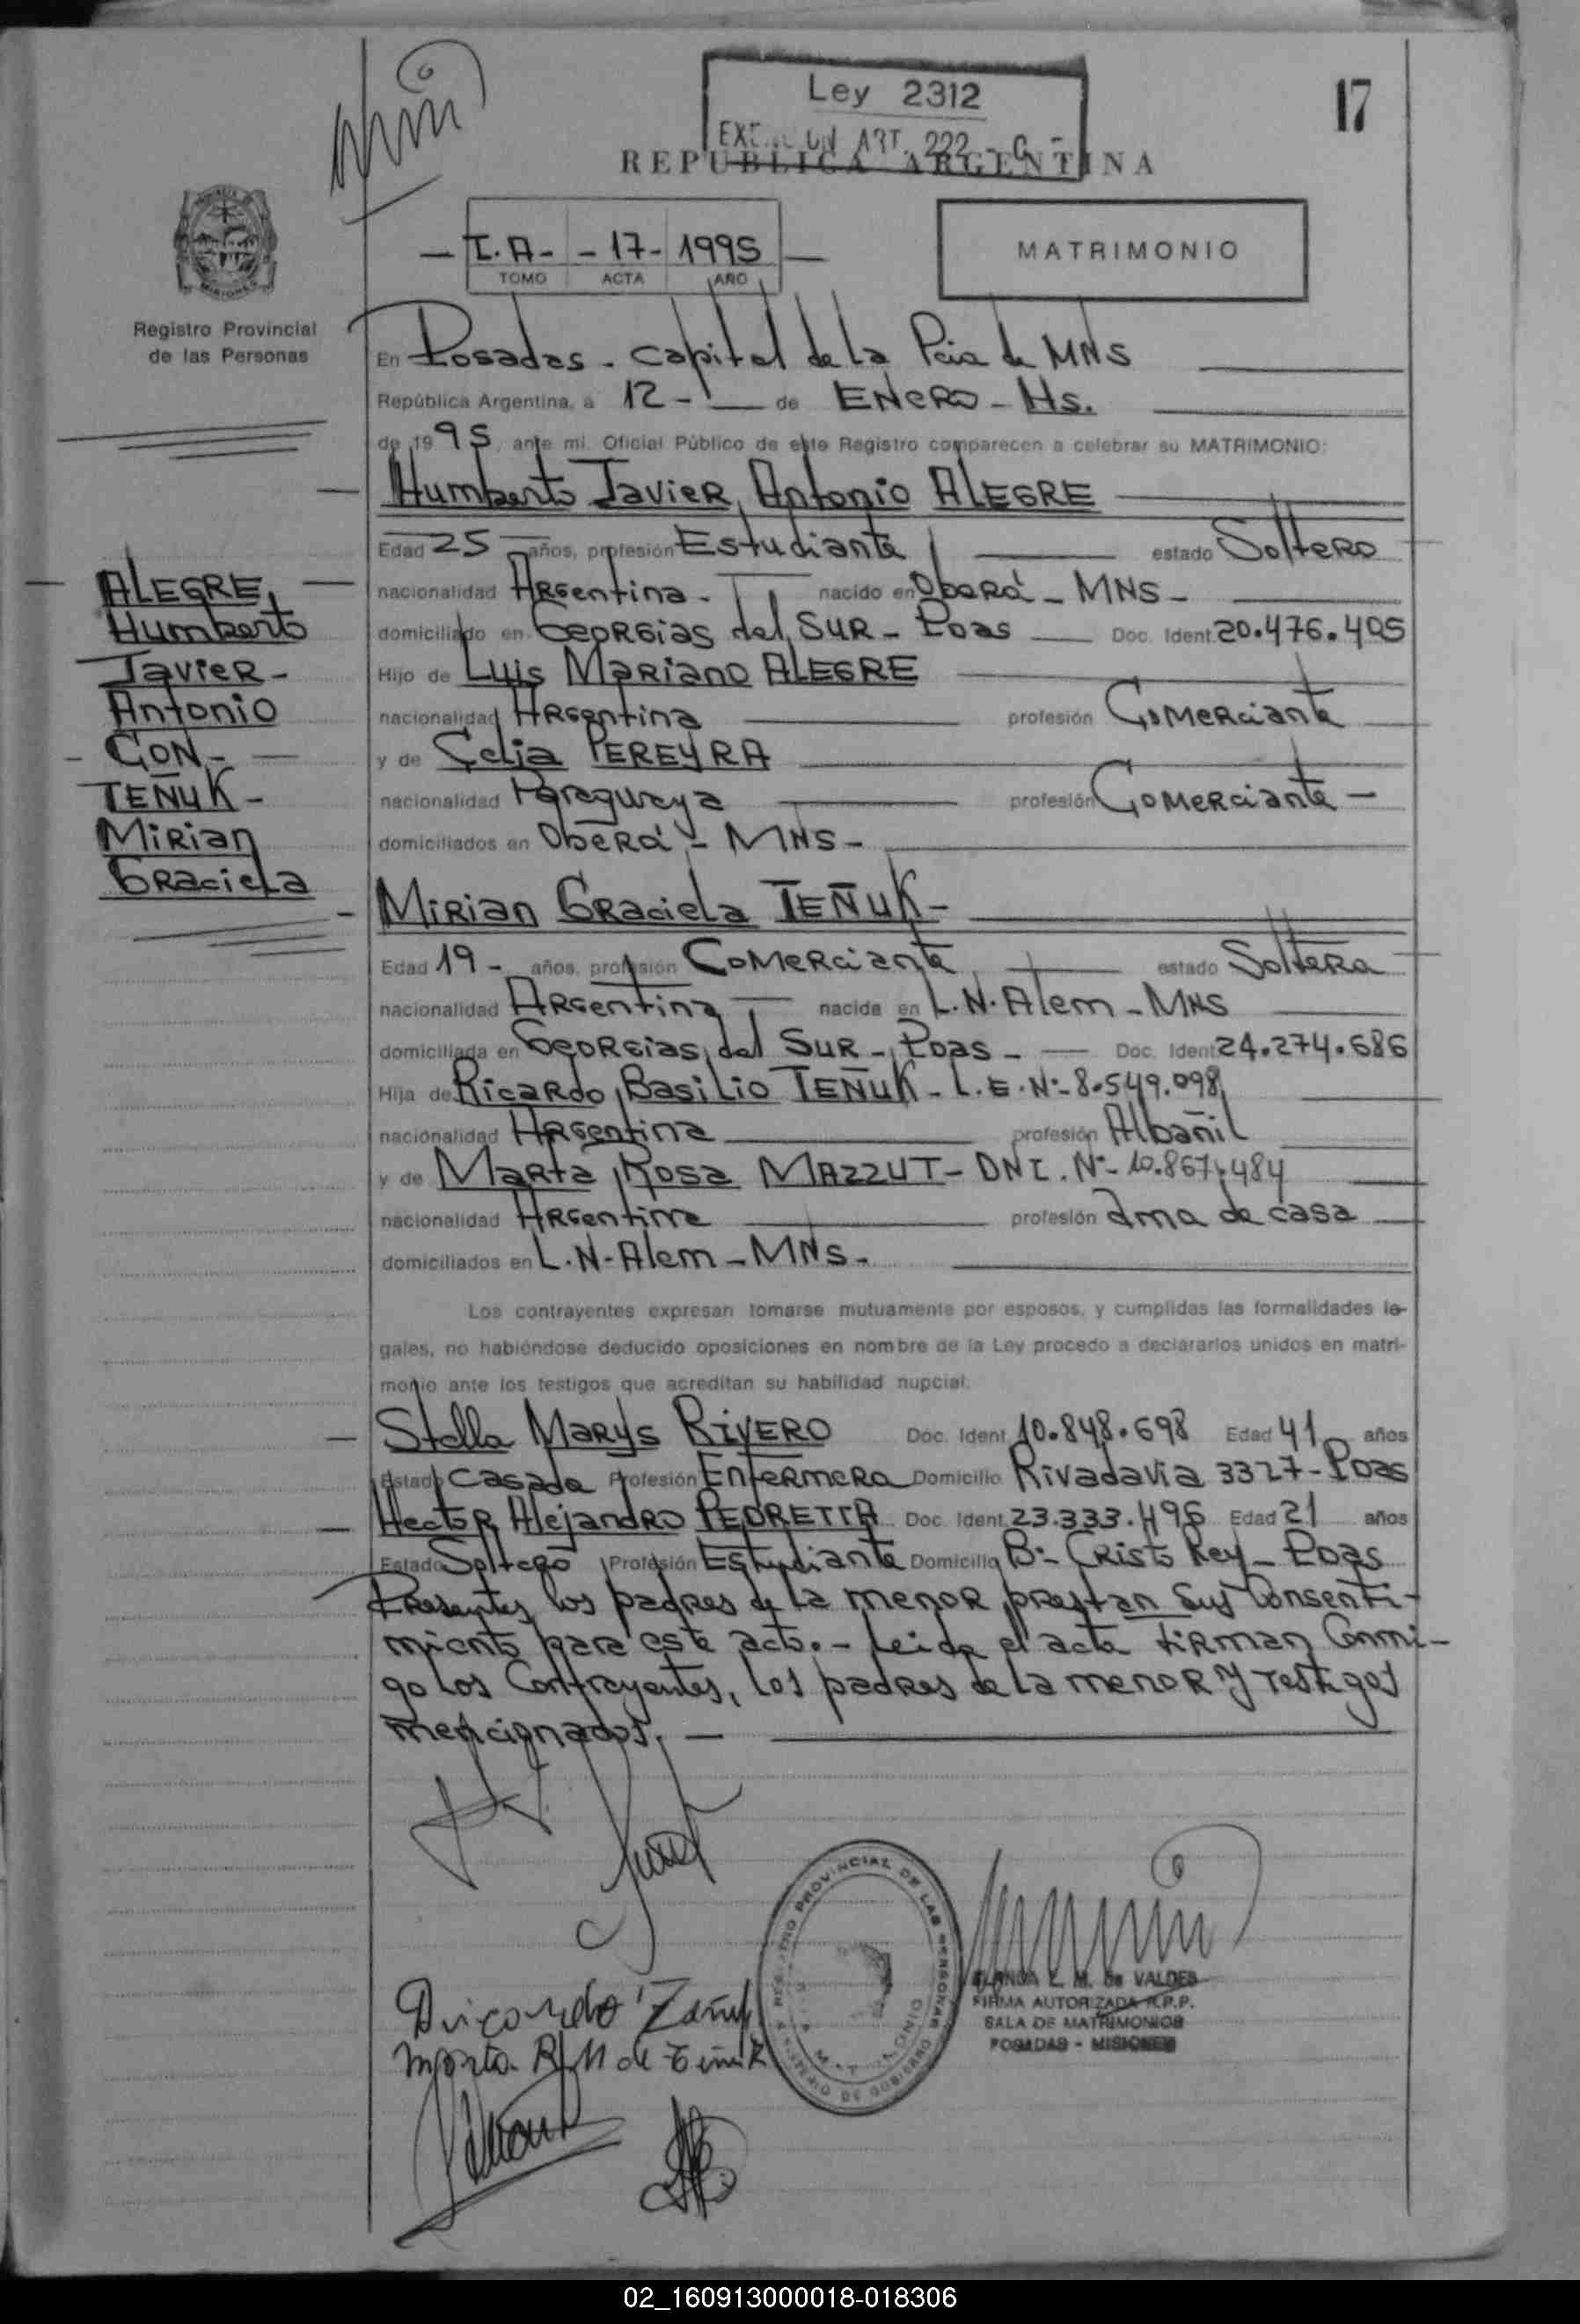 Ley 2312
ART. 222
17
REPUBLICA ARGENTINA
T.A- - 17- 1995
TOMO ACTA AÑO
MATRIMONIO
Registro Provincial
de las Personas
En Posadas - capital de la Pcia de MNS
República Argentina, a 12 - de ENERO - Hs.
de 1995, ante mi, Oficial Público de este Registro comparecen a celebrar su MATRIMONIO:
Humberto Javier Antonio ALEGRE
Edad 25 años, profesión Estudiante estado Soltero
nacionalidad Argentina - nacido en Oberá - MNS -
domiciliado en Georgias del Sur - Pdas Doc. Ident. 20.476.405
Hijo de Luis Mariano ALEGRE
nacionalidad Argentina profesión Comerciante
y de Celia PEREYRA
nacionalidad Paraguaya profesión Comerciante -
domiciliados en Oberá - MNS -
ALEGRE,
Humberto
Javier -
Antonio
- CON -
TEÑUK -
Mirian
Graciela
Mirian Graciela TEÑUK -
Edad 19 - años, profesión Comerciante estado Soltera
nacionalidad Argentina nacida en L.N. Alem - MNS
domiciliada en Georgias del Sur - Pdas - Doc. Ident. 24.274.686
Hija de Ricardo Basilio TEÑUK - L.E. Nº- 8.549.098
nacionalidad Argentina profesión Albañil
y de Marta Rosa MAZZUT - DNI. Nº- 10.867.484
nacionalidad Argentina profesión ama de casa
domiciliados en L.N. Alem - MNS -
Los contrayentes expresan tomarse mutuamente por esposos, y cumplidas las formalidades le-
gales, no habiéndose deducido oposiciones en nombre de la Ley procedo a declararlos unidos en matri-
monio ante los testigos que acreditan su habilidad nupcial.
Stella Marys RIVERO Doc. Ident. 10.848.698 Edad 41 años
Estado Casada Profesión Enfermera Domicilio Rivadavia 3327 - Pdas
Hector Alejandro PEDRETTA Doc. Ident. 23.333.496 Edad 21 años
Estado Soltero Profesión Estudiante Domicilio Bº- Cristo Rey - Pdas
Presentes los padres de la menor prestan sus consenti-
miento para este acto. - Leida el acta firman Conmi-
go los Contrayentes, los padres de la menor y testigos
mencionados. -
REGISTRO PROVINCIAL DE LAS PERSONAS
MINISTERIO DE GOBIERNO
MATRIMONIO
BLANCA L. M. de VALDES
FIRMA AUTORIZADA R.P.P.
SALA DE MATRIMONIOS
POSADAS - MISIONES
02_160913000018-018306